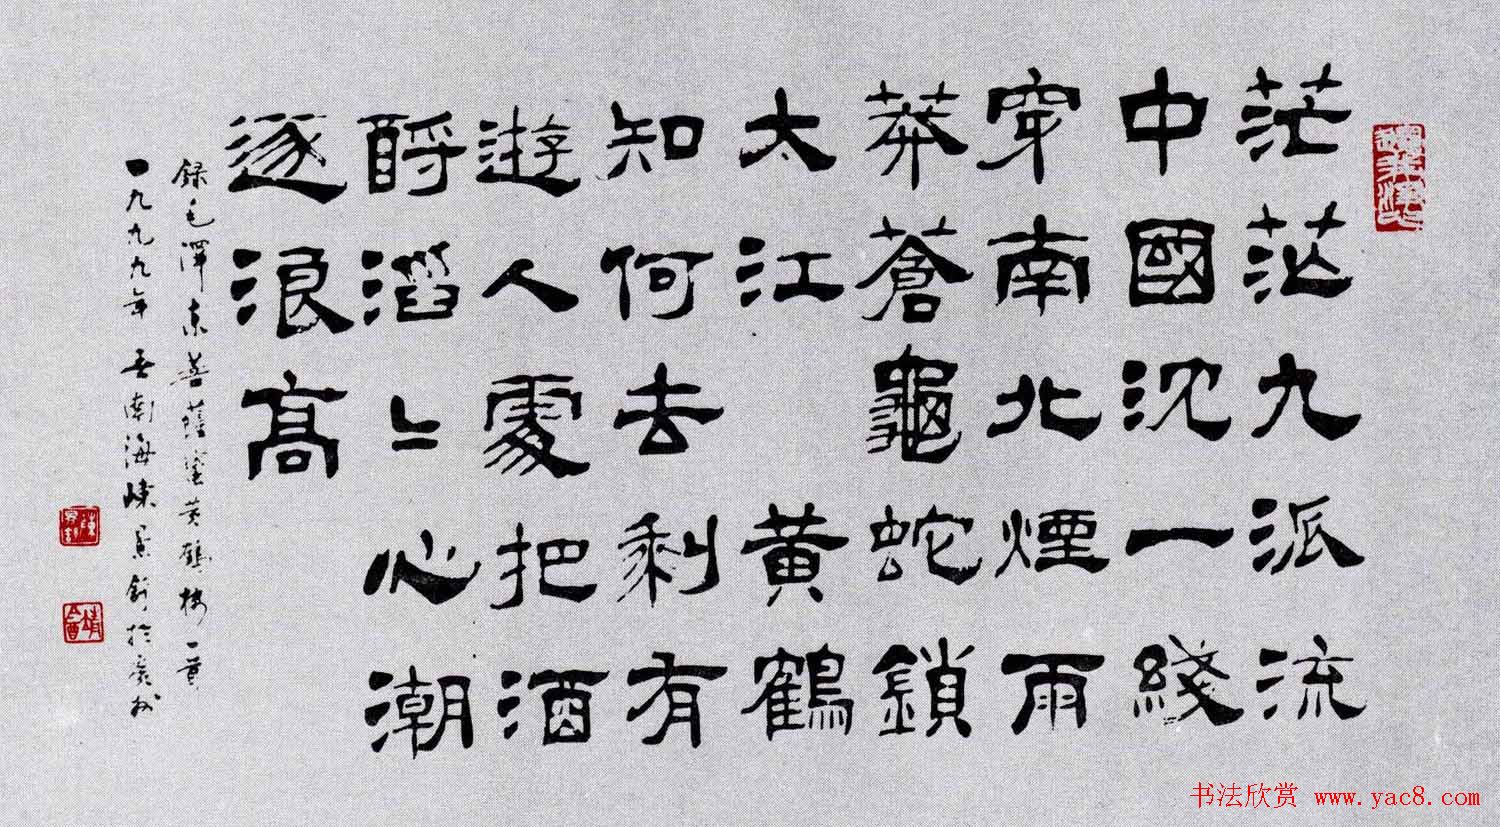 茫茫九派流
中國沈一綫
穿南北煙雨
莽蒼龜蛇鎖
太江 黃鶴
知何去剩有
遊人處把酒
酹滔〻心潮
逐浪高
錄毛澤東菩薩蠻黃鶴樓一
一九九九年 南海陳景舒於廣州
书法欣赏 www.yac8.com